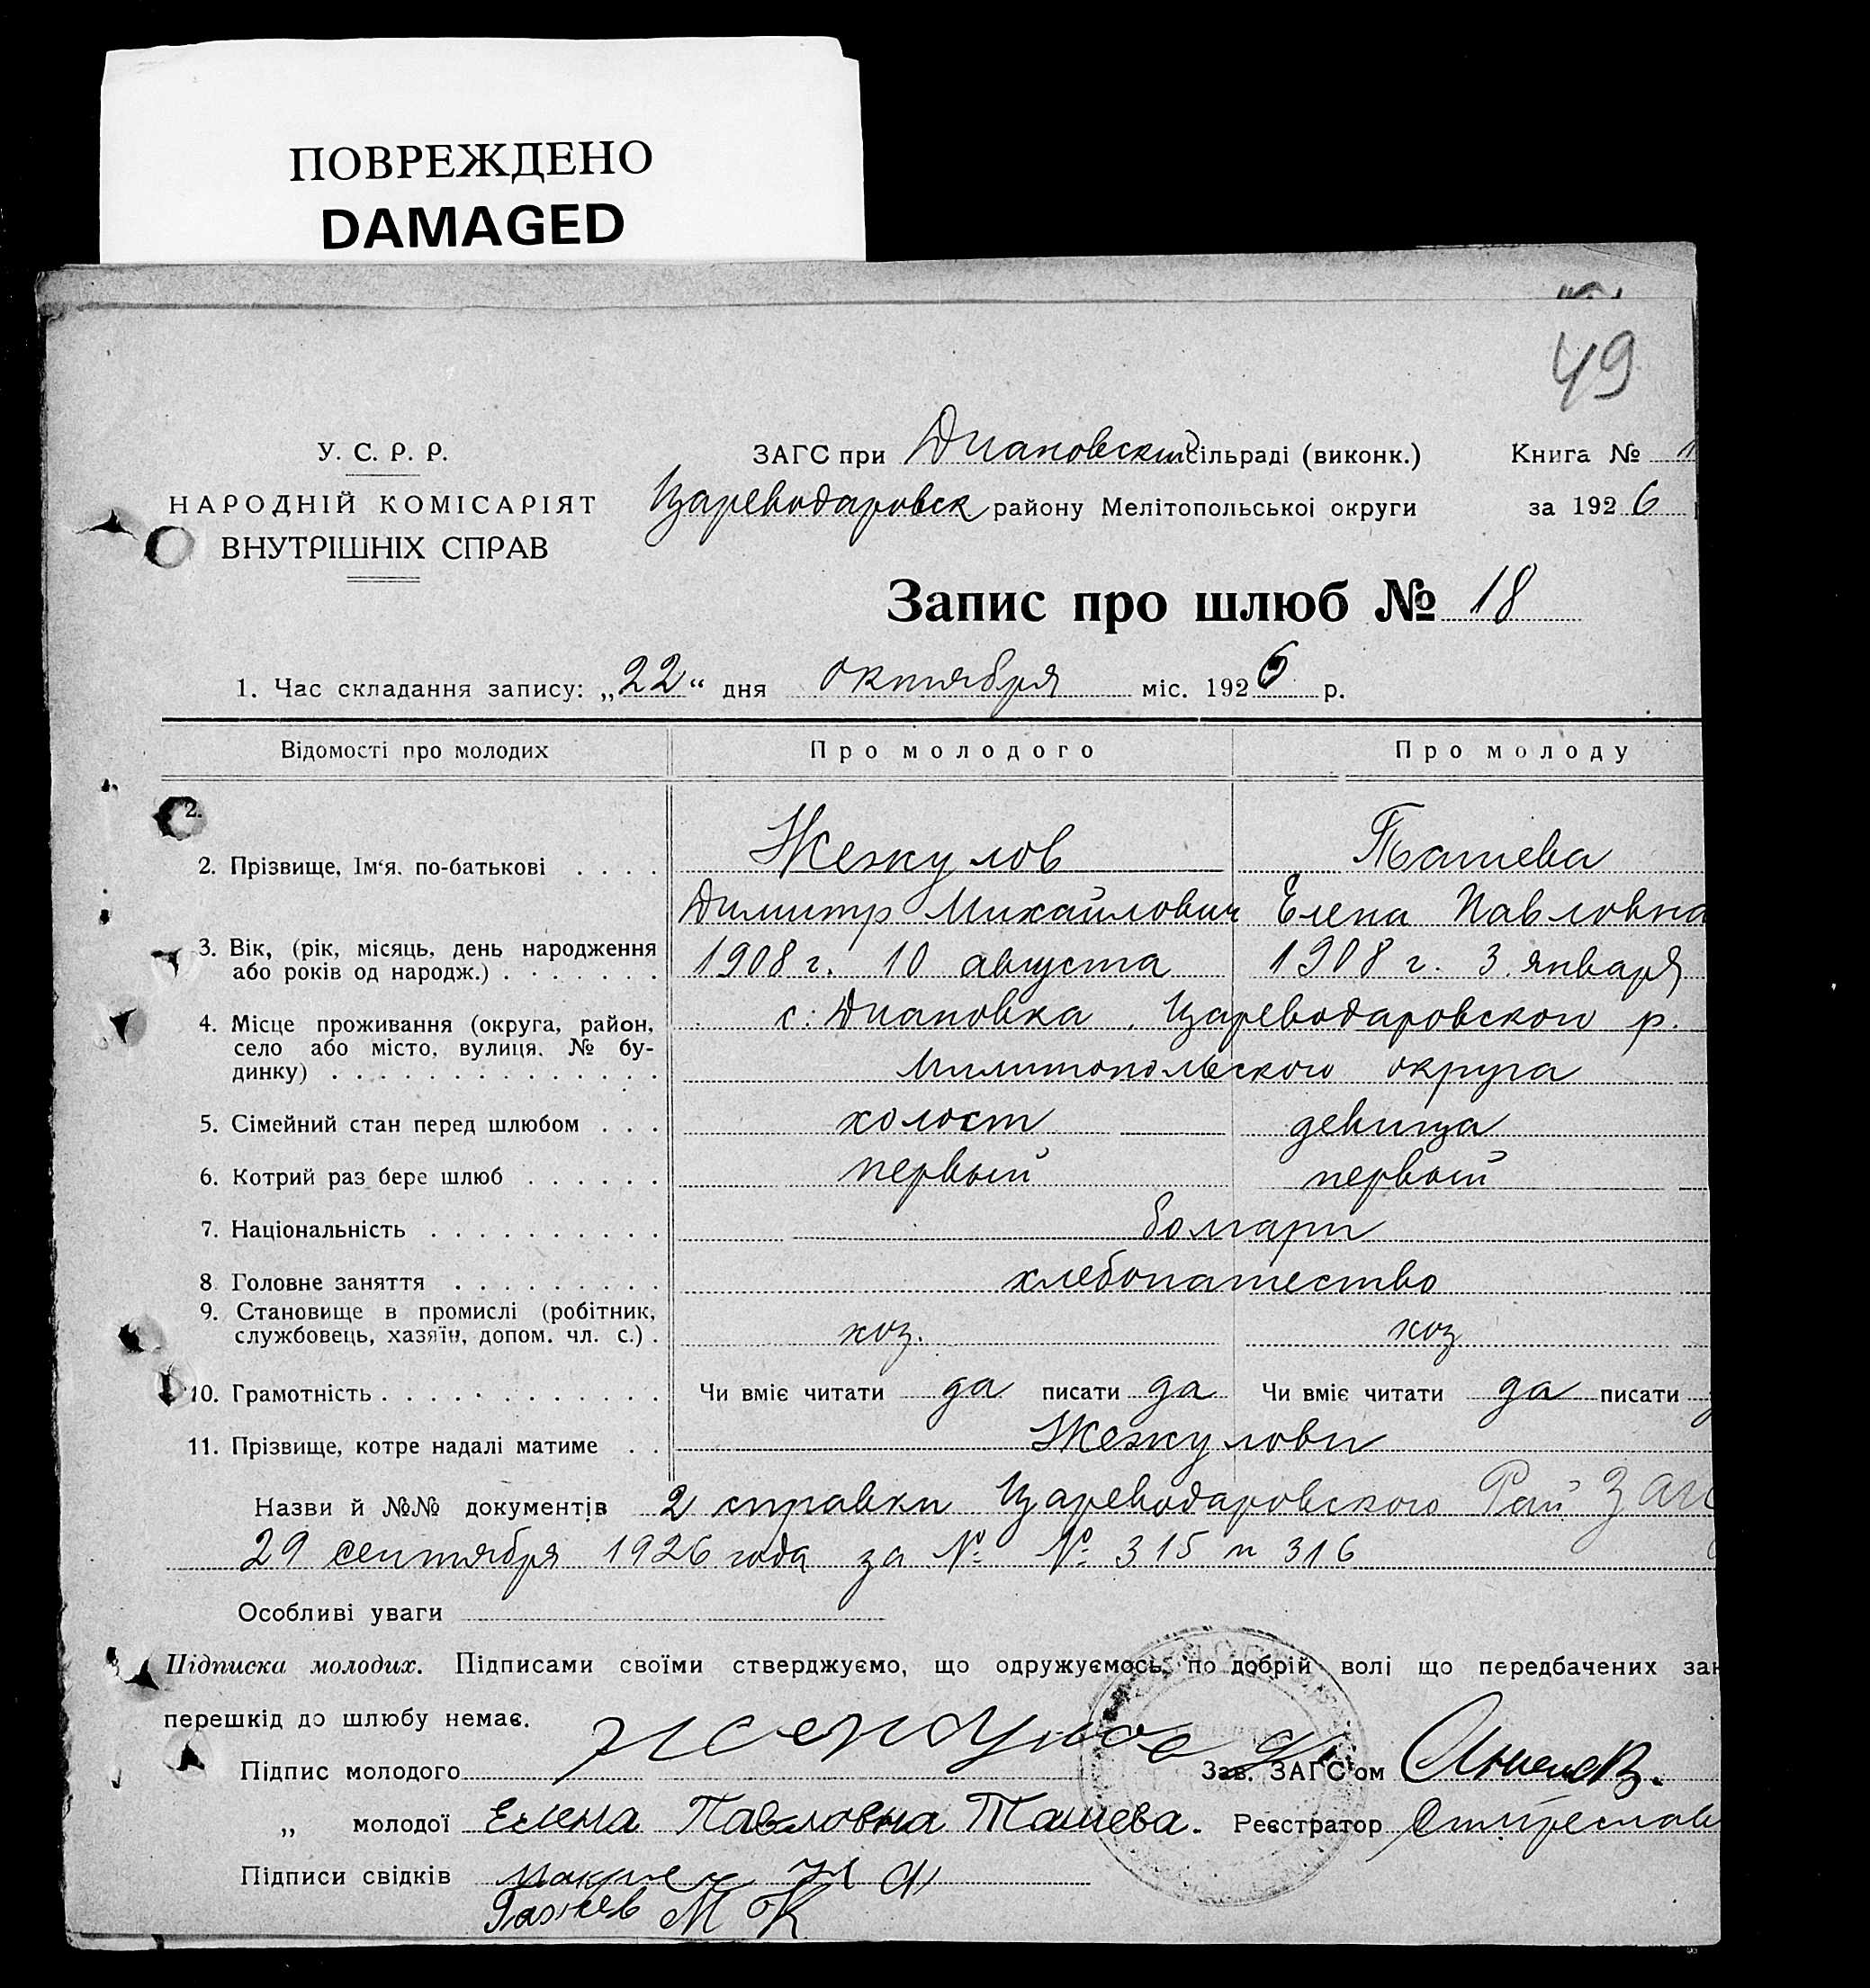 ПОВРЕЖДЕНО
DAMAGED
49
У. С. Р. Р.
НАРОДНІЙ КОМІСАРІЯТ
ВНУТРІШНІХ СПРАВ
ЗАГС при Диановский сільраді (виконк.)
Цареводаровск району Мелітопольської округи
Книга №
за 1926
Запис про шлюб № 18
1. Час складання запису: „22“ дня октября міс. 1926 р.
Відомості про молодих Про молодого Про молоду
2.
2. Прізвище, Ім‘я. по-батькові . . . . Жекулов Ташева
Димитр Михайлович Елена Павловна
3. Вік, (рік, місяць, день народження
або років од народж.) . . . . . . . 1908 г. 10 августа 1908 г. 3 января
4. Місце проживання (округа, район, с. Диановка Цареводаровского р.
село або місто, вулиця. № бу-
динку) . . . . . . . . . . . . . . Милитопольского округа
5. Сімейний стан перед шлюбом . . . холост девица
6. Котрий раз бере шлюб . . . . . . первый первый
7. Національність . . . . . . . . . . болгари
8 Головне заняття . . . . . . . . . хлебопашество
9. Становище в промислі (робітник,
службовець, хазяїн, допом. чл. с.) . хоз. хоз
10. Грамотність . . . . . . . . . . . . Чи вміє читати да писати да Чи вміє читати да писати
11. Прізвище, котре надалі матиме . . Жекулови
Назви й №№ документів 2 справки Цареводаровского Рай ЗАГ
29 сентября 1926 года за № № 315 и 316
Особливі уваги
Підписка молодих. Підписами своїми стверджуємо, що одружуємось, по добрій волі що передбачених зак
перешкід до шлюбу немає.
Підпис молодого Жекулов Д. Зав. ЗАГС'ом
„ молодої Елена Павловна Ташева. Реєстратор
Підписи свідків
М К